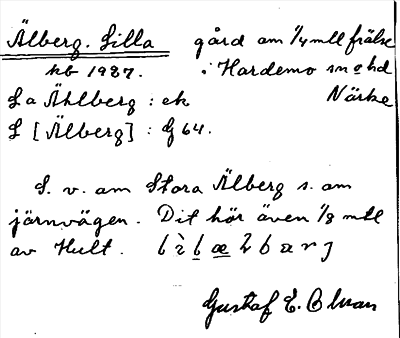 Älberg. Lilla gård om 1/4 mtl frälse
kb 1927. i Hardemo sn o hd
La Ählberg : ek Närke
L [Älberg] : G 64.
S. v. om Stora Älberg s. om
järnvägen. Dit hör även 1/8 mtl
av Hult.
Gustaf E. Blman